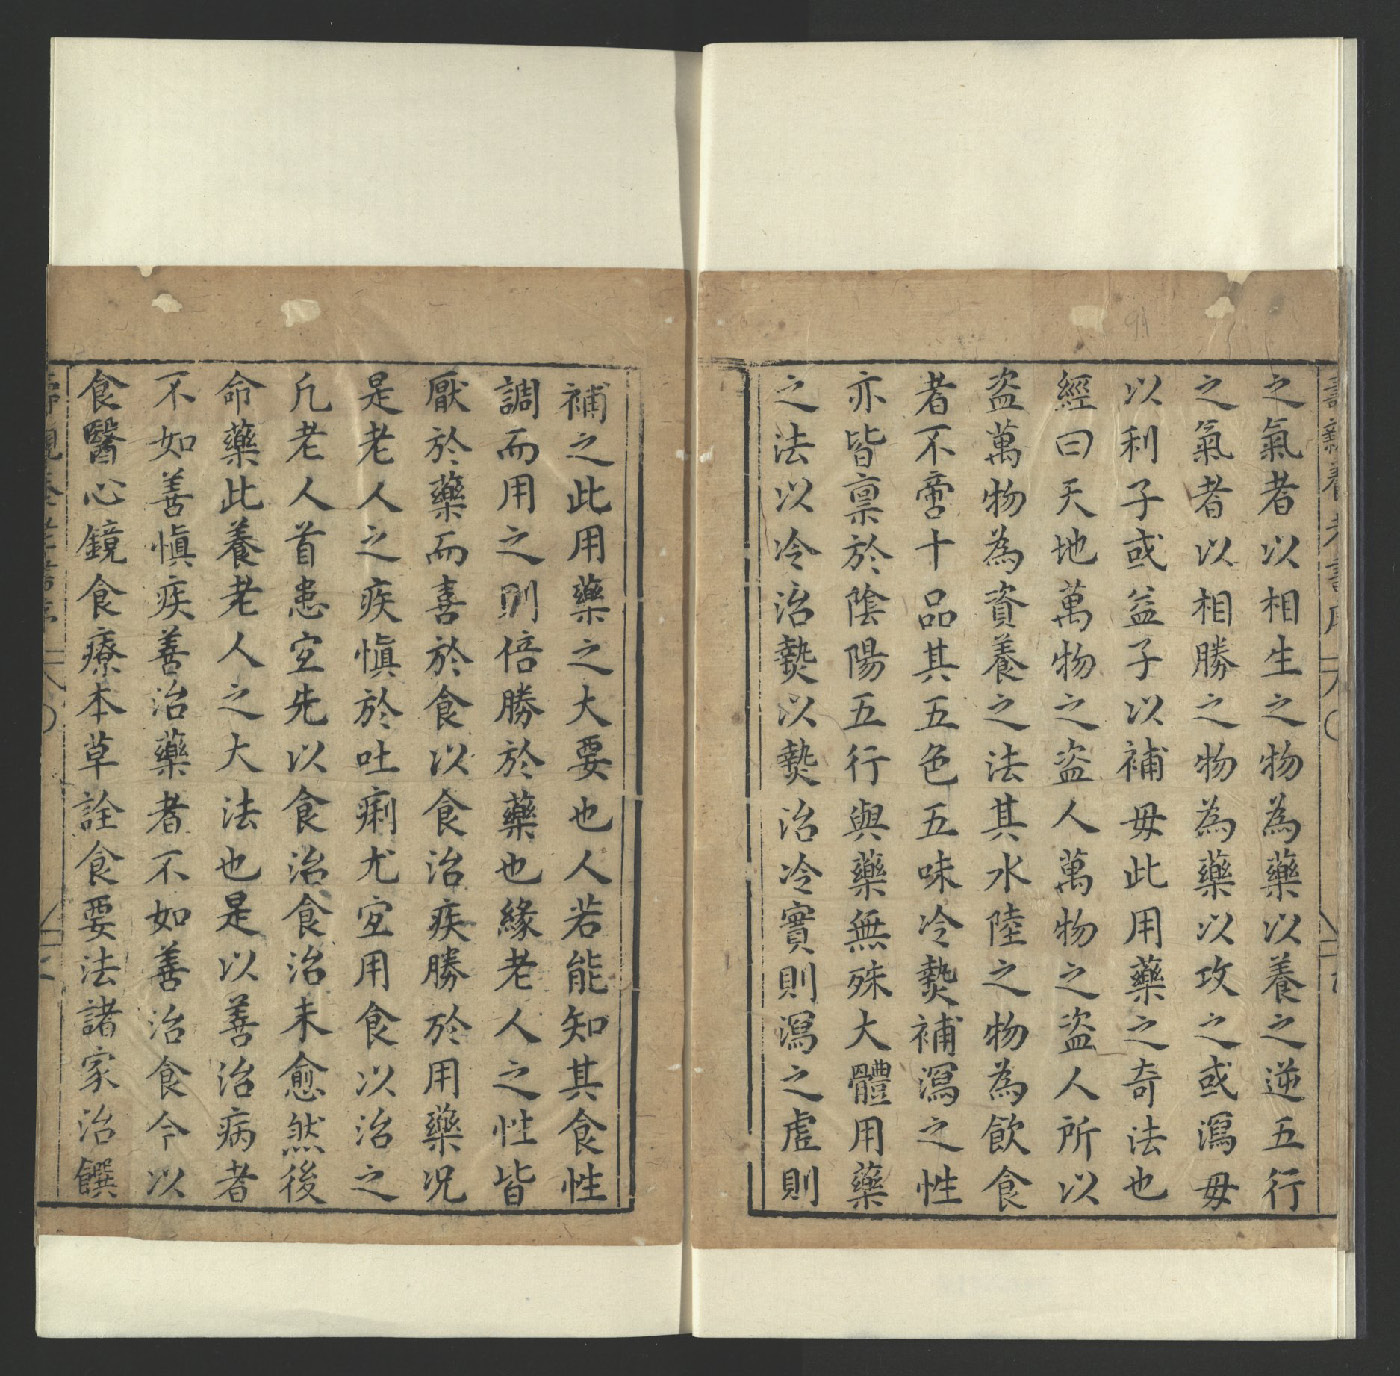 之氣者以相生之物為藥以養之逆五行
之氣者以相勝之物為藥以攻之或瀉毋
以利子或益子以補毋此用藥之奇法也
經曰天地萬物之盗人萬物之盗人所以
盗萬物為資養之法其水陸之物為飲食
者不啻十品其五色五味冷𤍠補瀉之性
亦皆禀於陰陽五行與藥無殊大體用藥
之法以冷治𤍠以𤍠治冷實則瀉之虛則
補之此用藥之大要也人若能知其食性
調而用之則倍勝於藥也緣老人之性皆
厭於藥而喜於食以食治疾勝於用藥况
是老人之疾慎於吐痢尤宜用食以治之
凡老人首患宜先以食治食治未愈然後
命藥此養老人之大法也是以善治病者
不如善慎疾善治藥者不如善治食今以
食醫心鏡食療本草詮食要法諸家治饌